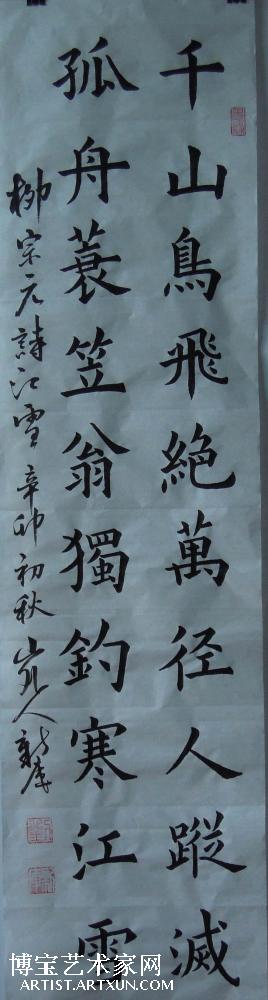 千山鳥飛絶萬径人蹤滅
孤舟蓑笠翁獨釣寒江雪
柳宗元詩江雪辛卯初秋
博宝艺术家网
ARTIST.ARTXUN.COM